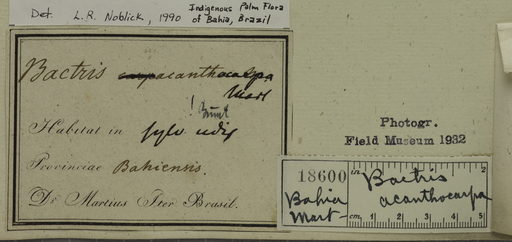 Det. L. R. Noblick, 1990 Indigenous Palm Flora
of Bahia, Brazil
Bactris acanthocarpa
Mart
Habitat in sylv. udis
Provinciae Bahiensis.
Dr Martius Iter Brasil.
Photogr.
Field Museum 1932
18600
Bahia
Mart-
in
2
Bactris
acanthocarpa
cm. 1 2 3 4 5